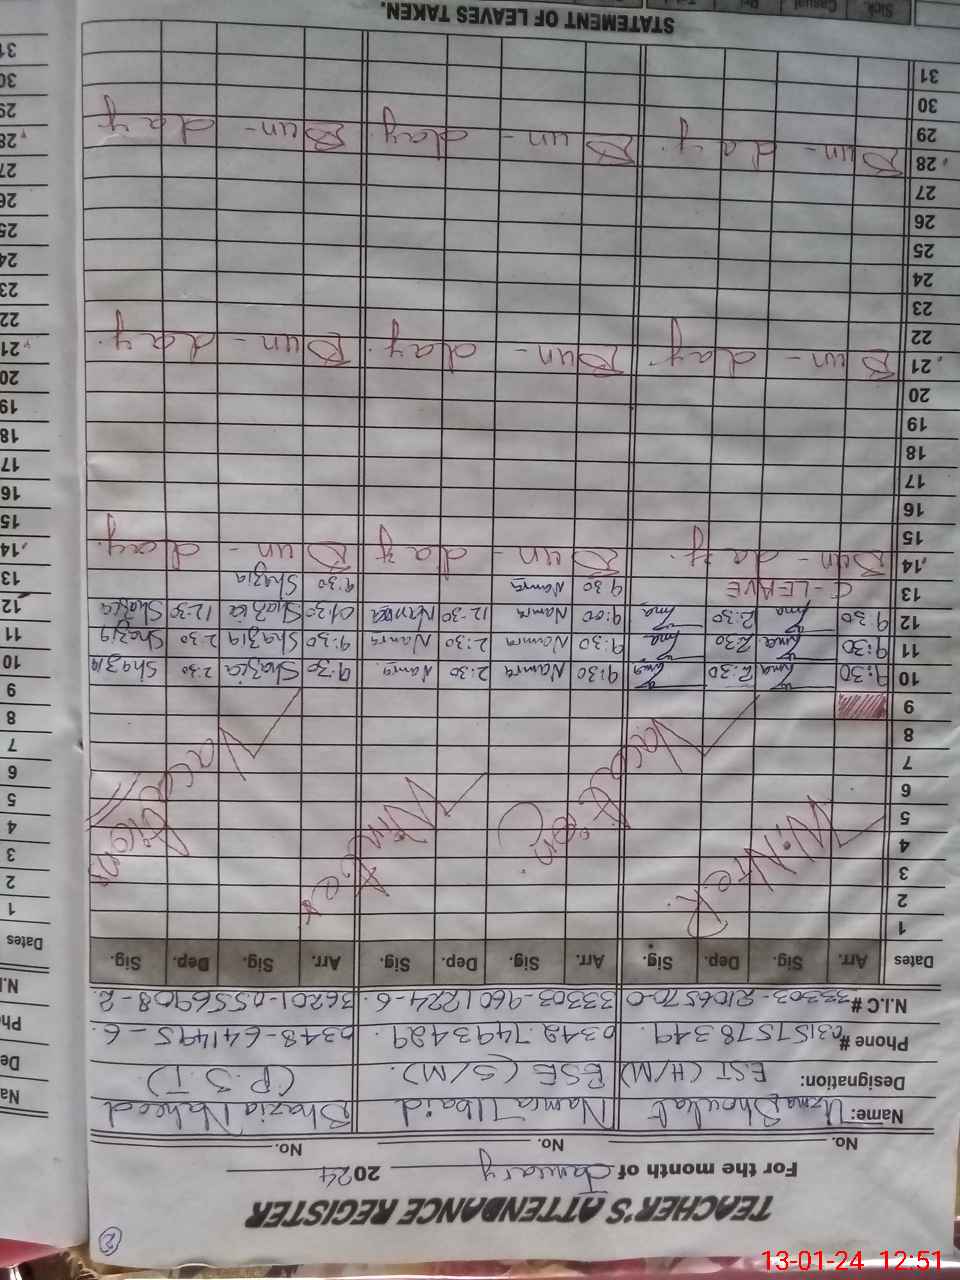 2
TEACHER'S ATTENDANCE REGISTER
For the month of January 2024
No. No. No.
Name: Uzma Shoukat Namra Ubaid Shazia Naheed
Designation: EST (H/M) ESE (S/M). (P.S.T)
Phone # 03157578349. 0342.7493429 0348-641495-6
N.I.C # 33303-2106570-0 33303-9601224-6. 36201-0556908-2
Dates Arr. Sig. Dep. Sig. Arr. Sig. Dep. Sig. Arr. Sig. Dep. Sig.
1
2
3
4
5
6
7
8
9
WiNteR Vacation Winter Vacation
10 9:30 Uzma 2:30 Uzma 9:30 Namra 2:30 Namra. 9:30 Shazia 2:30 Shazia
11 9:30 Uzma 2:30 Uzma 9:30 Namra 2:30 Namra 9:30 Shazia 2:30 Shazia
12 9:30 Uzma 2:30 Uzma 9:00 Namra 12-30 Namra Shazia 12:30 Shazia
13 C-LEAVE 9:30 Namra 9:30 Shazia
14 Sun-day. Sun-day Sun-day.
15
16
17
18
19
20
21 Sun-day Sun-day. Sun-day.
22
23
24
25
26
27
28 Sun-day. Sun-day. Sun-day
29
30
31
STATEMENT OF LEAVES TAKEN.
Sick. Casual
Dates
1
2
3
4
5
6
7
8
9
10
11
12
13
14
15
16
17
18
19
20
21
22
23
24
25
26
27
28
29
30
31
13-01-24 12:51